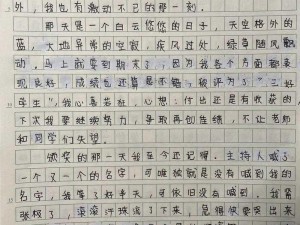 外，我也有激动不已的那一刻。
那天是一个白云悠悠的日子，天空格外的
蓝，大地异常的空旷，疾风过外，绿草随风飘
动。马上就要到期末了，因为我各个方面都表
现良好，成绩也还算是不错，被评为"三好
学生"，我心喜若狂，心想：付出还是有收获的
下次我要继续努力，争取再创佳绩，不让老师
和同学们失望。
颁奖的那一天我至今还记得，主持人喊了
一个又一个的名字，可唯独就是没有喊到我的
名字，我等了好半天，可依旧没有喊到，我紧
张极了，滚滚汗珠流了下来，急得快要哭出来